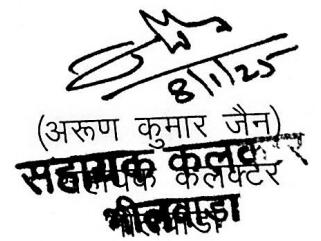 8/1/25
(अरूण कुमार जैन)
सहायक कलक्टर
भीलवाड़ा